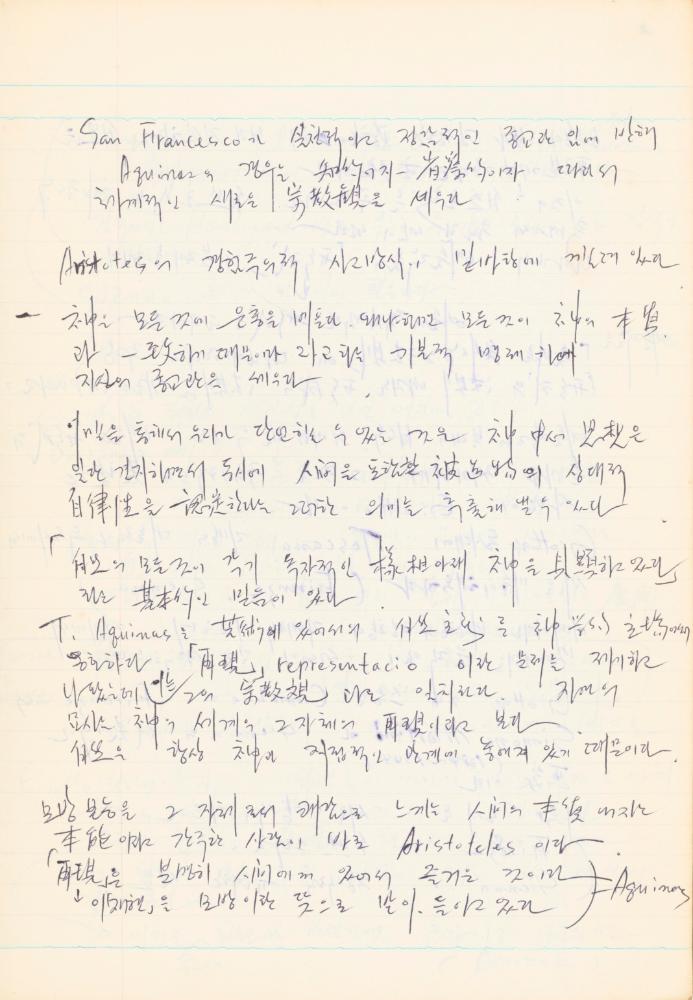 San Francesco가 실천적이고 정감적인 종교관임에 반해
Aquinas의 경우는 知的이지 따라서
체계적인 새로운 宗敎觀을 세우다
Aristoteles의 경험주의적 사고방식이 밑바탕에 깔려 있다
— 神은 모든 것에 은총을 베풀다. 왜냐하면 모든 것이 神의 本質
과 一致하기 때문이다 라고 하는 기본적 명제 하에
자신의 종교관을 세우다.
이말을 통해서 우리가 단언하는 수 있는 것은 神 中心 思想은
일단 견지하면서 동시에 人間을 포함한 被造物의 상대적
自律性을 認定한다는 그러한 의미를 추출해 낼 수 있다
「自然의 모든 것이 각기 독자적인 樣相아래 神을 具顯하고 있다」
라는 基本的인 믿음이 있다
T. Aquinas는 芸術에 있어서의 自然主義를 神學的 立場에서
옹호하다 「再現」 representacio 이란 문제를 제기하고
나섰는데 이는 그의 宗敎觀과도 일치한다. 자연의
묘사는 神의 세계의 그 자체의 再現이라고 보다
自然은 항상 神과 직접적인 관계에 놓여져 있기 때문이다.
모방 본능을 그 자체로서 쾌감으로 느끼는 人間의 本質 내지는
本能이라고 간주한 사람이 바로 Aristoteles 이다
「再現」은 분명히 人間에게 있어서 즐거운 것이다
「이재현」을 모방이란 뜻으로 받아 들이고 있다 Aquinas